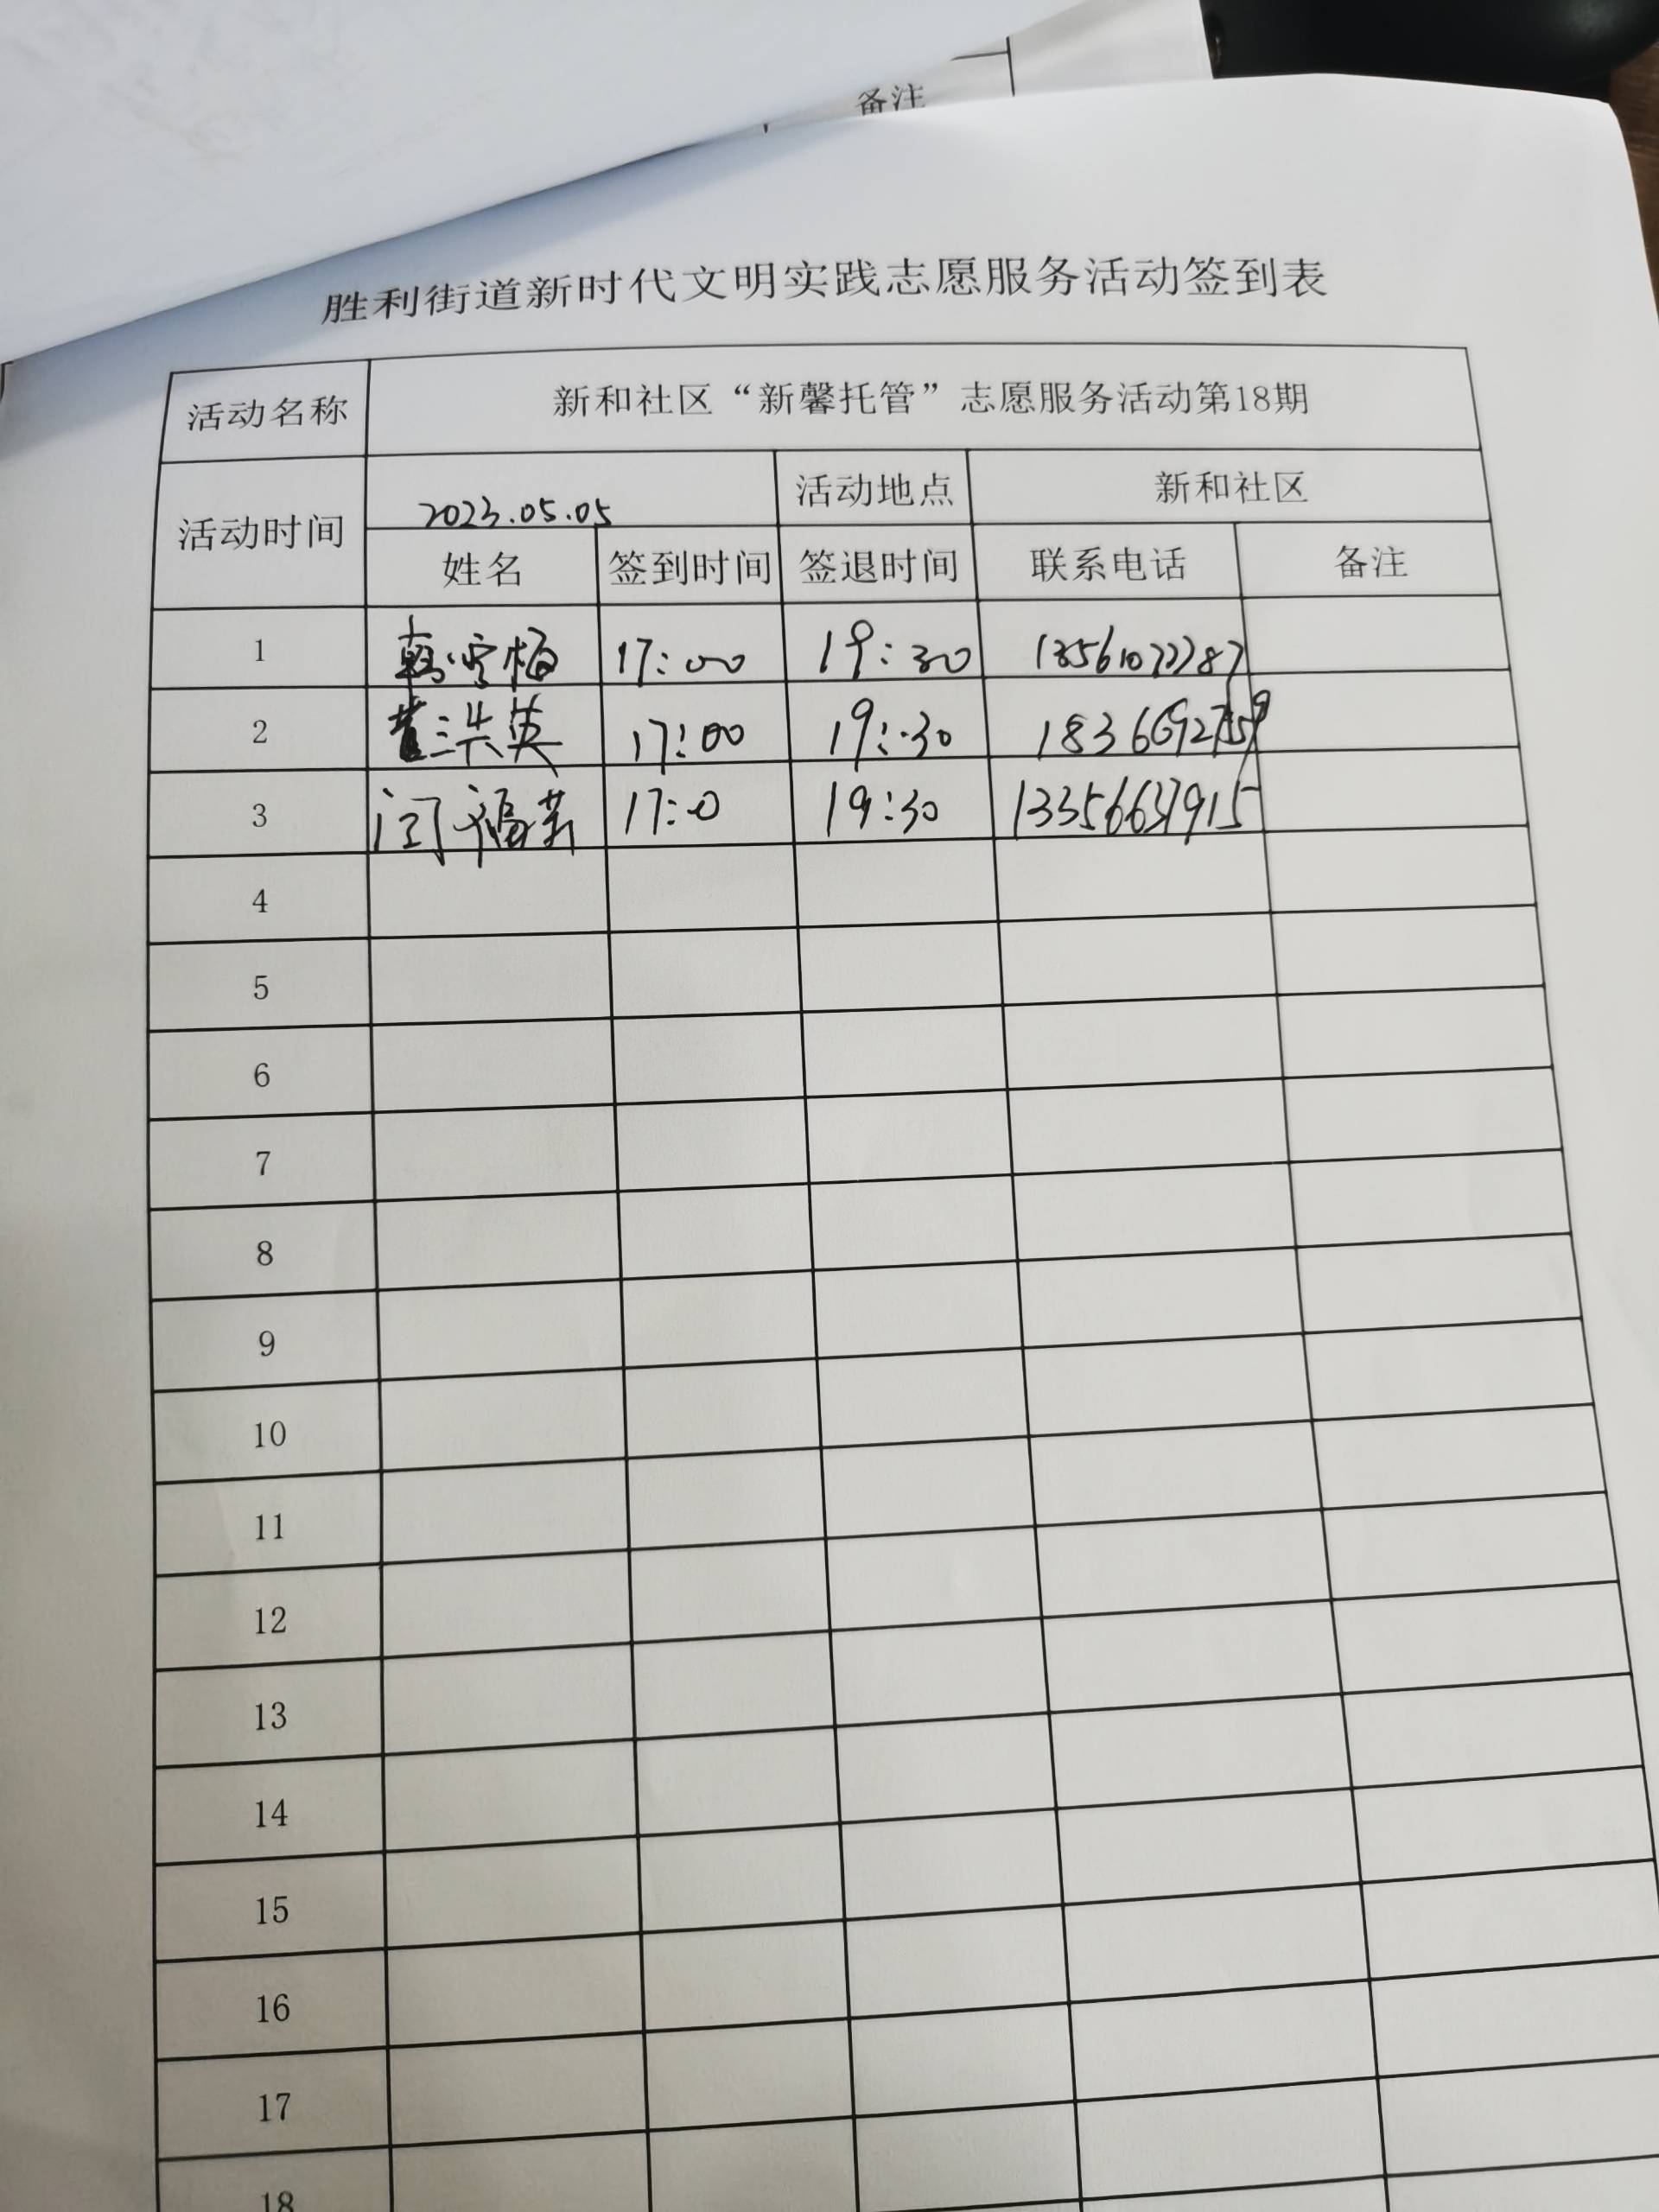 备注
胜利街道新时代文明实践志愿服务活动签到表
活动名称 新和社区“新馨托管”志愿服务活动第18期
活动时间 2023.05.05 活动地点 新和社区
姓名 签到时间 签退时间 联系电话 备注
1 韩雪梅 17:00 19:30
2 英 17:00 19:30
3 闫福 17:0 19:30 13356637915
4
5
6
7
8
9
10
11
12
13
14
15
16
17
18